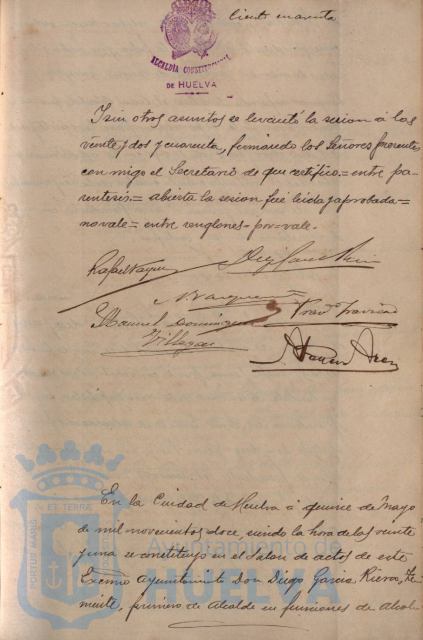 ciento cuarenta
ALCALDIA CONSTITUCIONAL
DE HUELVA
I sin otros asuntos se levantó la sesion á las
veinte y dos y cuarenta, firmando los Señores presentes
con migo el Secretario de que certifico.= entre pa-
rentesis.= abierta la sesion fué leida y aprobada=
no vale= entre renglones- por- vale.
Rafael Vazquez
N. Vazquez
Manuel Dominguez
Villegas
PORTUS MARIS
ET TERRAE
En la Ciudad de Huelva á quince de Mayo
de mil novecientos doce, siendo la hora de las veinte
y una se constituyó en el Salon de actos de este
Excmo Ayuntamiento Don Diego Garcia Rieros, Te-
niente, primero de Alcalde en funciones de Alcal-
Ayuntamiento de
HUELVA